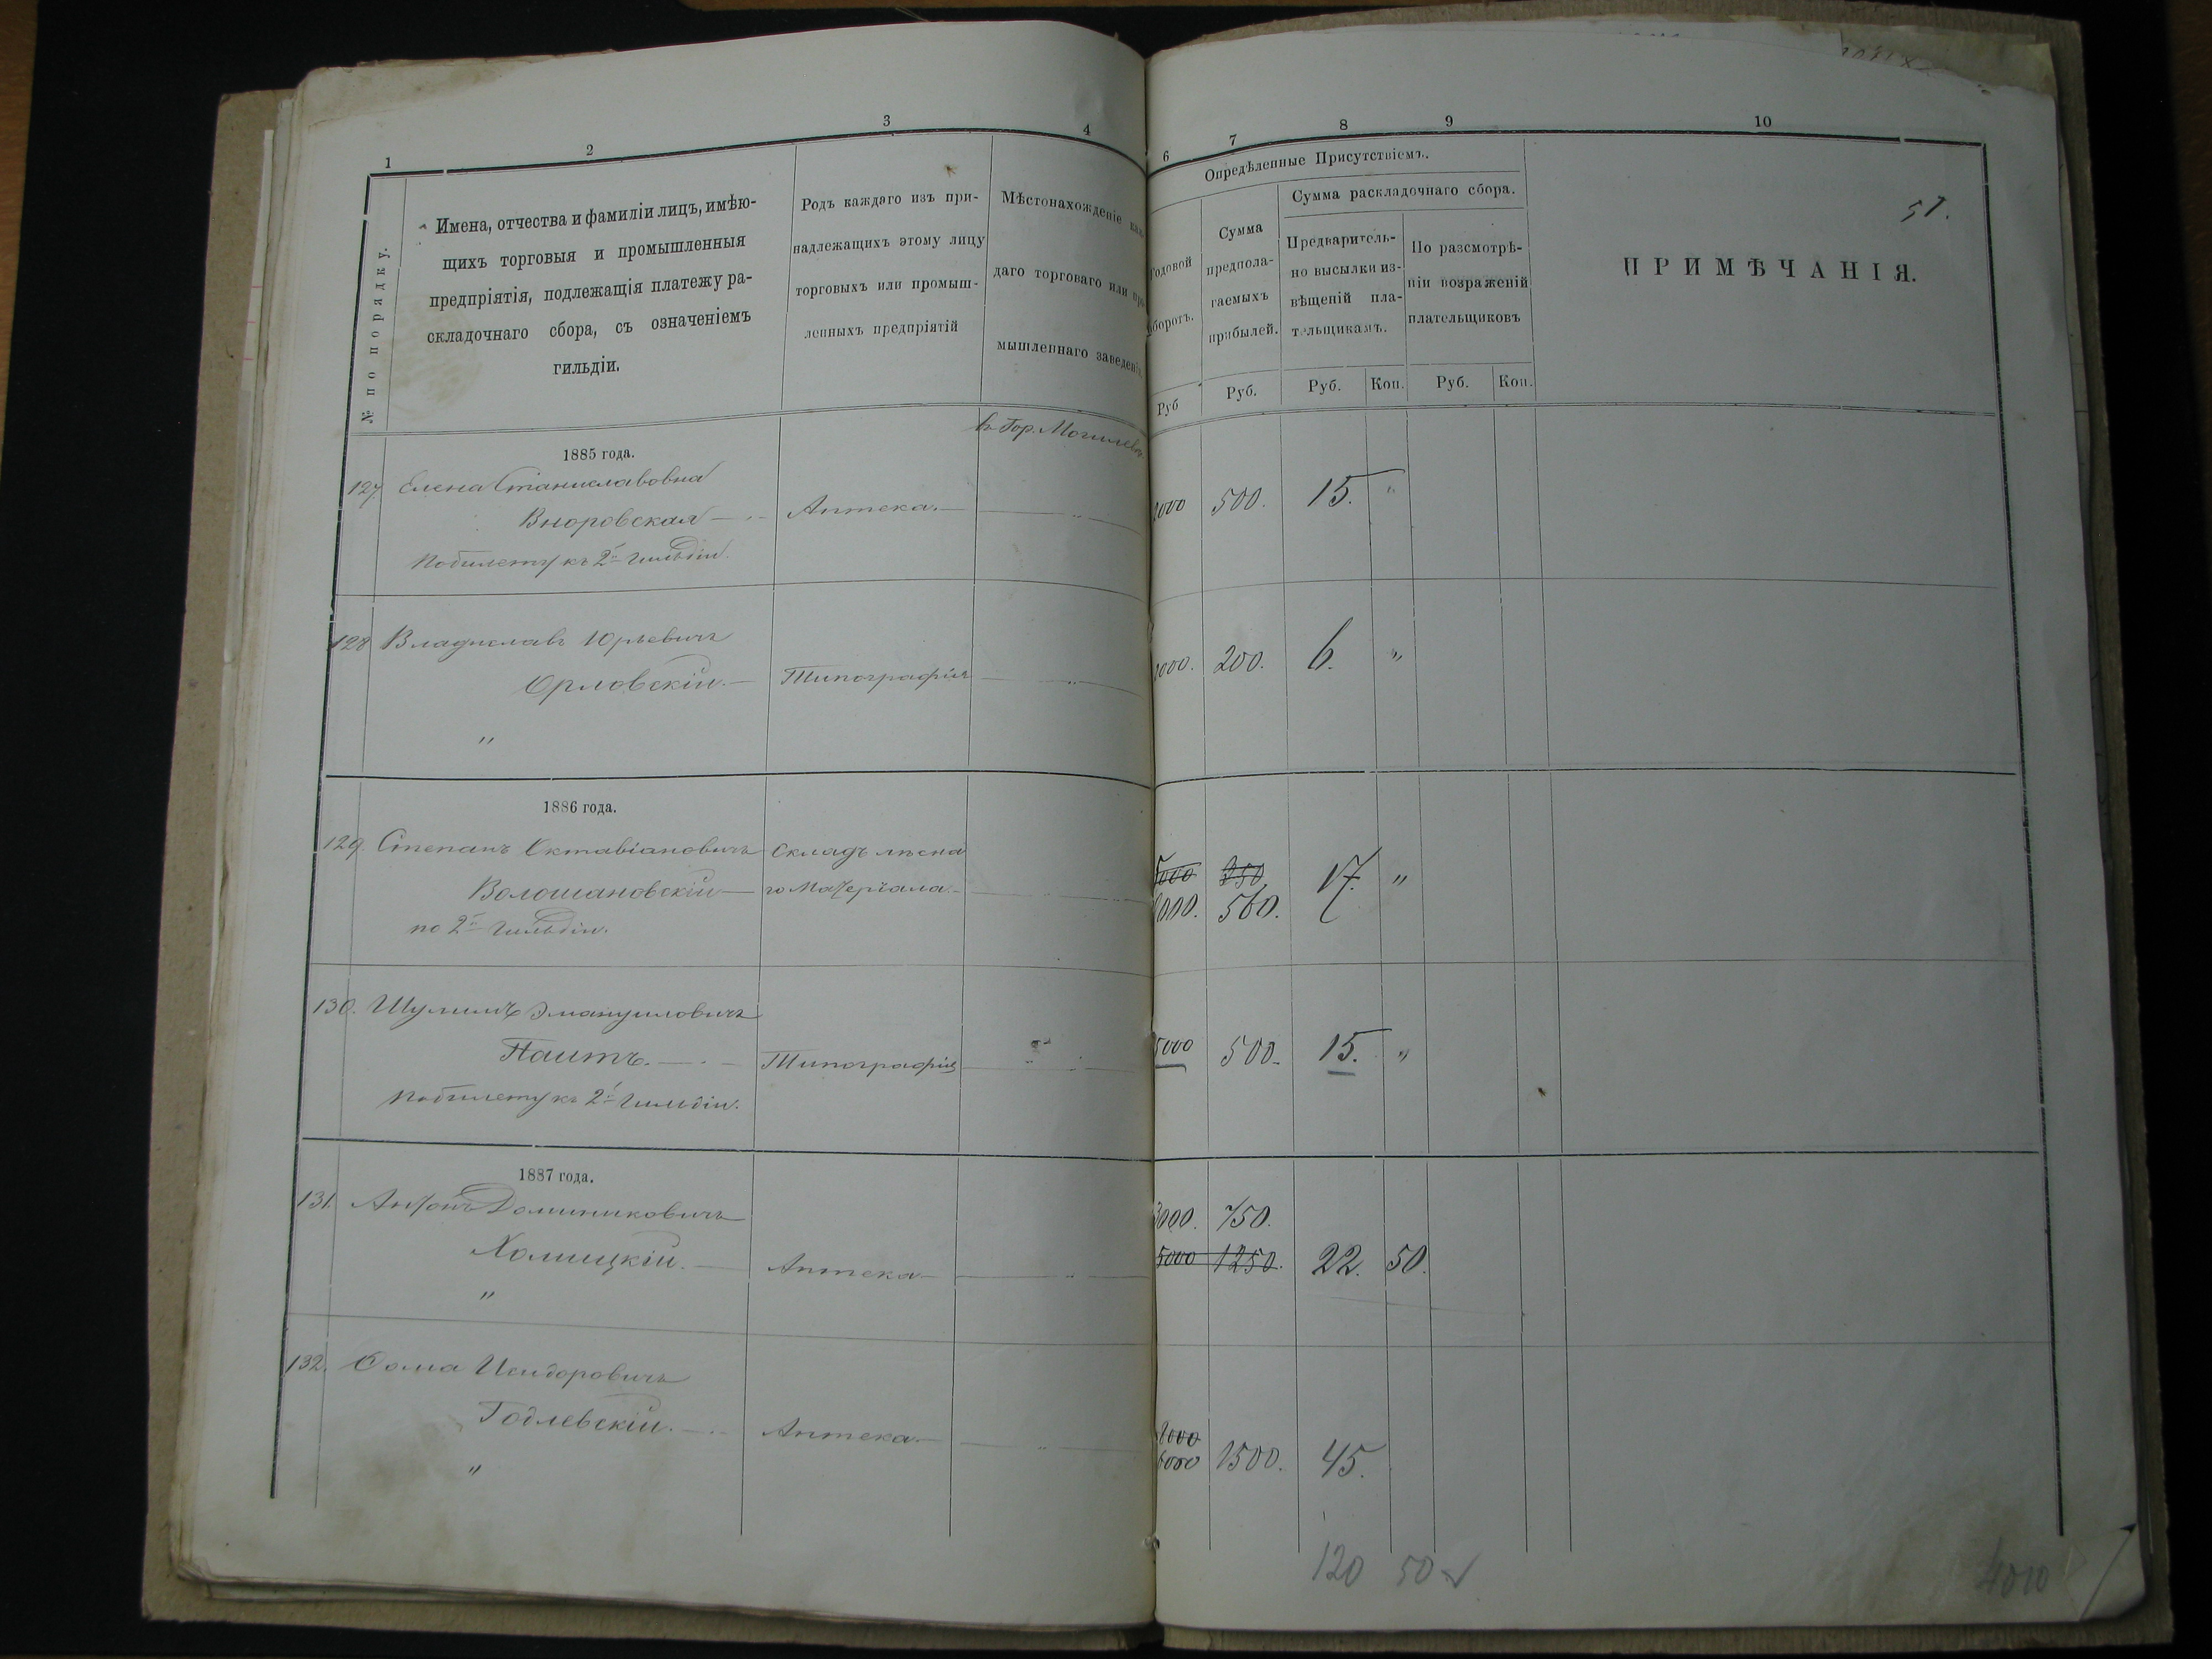 1
2
3
4
6
7
8
9
10
№ по порядку.
Имена, отчества и фамиліи лицъ, имѣю-
щихъ торговыя и промышленныя
предпріятія, подлежащія платежу ра-
складочнаго сбора, съ означеніемъ
гильдіи.
Родъ каждаго изъ при-
надлежащихъ этому лицу
торговыхъ или промыш-
ленныхъ предпріятій
Мѣстонахожденіе каж-
даго торговаго или про-
мышленнаго заведенія.
Опредѣленные Присутствіемъ.
Годовой
оборотъ.
Руб
Сумма
предпола-
гаемыхъ
прибылей.
Руб.
Сумма раскладочнаго сбора.
Предваритель-
но высылки из-
вѣщеній пла-
тельщикамъ.
Руб. Коп.
По разсмотрѣ-
ніи возраженій
плательщиковъ
Руб. Коп.
ПРИМѢЧАНІЯ.
51.
1885 года.
въ Гор. Могилевѣ
127. Елена Станиславовна
Вноровская Аптека. 500. 15. "
По билету къ 2й гильдіи.
128 Владиславъ Юрьевичъ
Орловскій. Типографія 200. 6. "
"
1886 года.
129. Степанъ Октавіановичъ Складъ лѣсна
Волошановскій го Матеріала. 5000 250
560. 17. "
по 2й гильдіи.
130. Шулимъ Эмануиловичъ
Паитъ. Типографія 5000 500. 15. "
По билету къ 2й гильдіи.
1887 года.
131. Антонъ Доминиковичъ 3000. 750.
Холицкій. Аптека 5000 1250. 22. 50.
"
132. Ѳома Исидоровичъ
Годлевскій. Аптека. 6000 1500. 45.
"
120 50